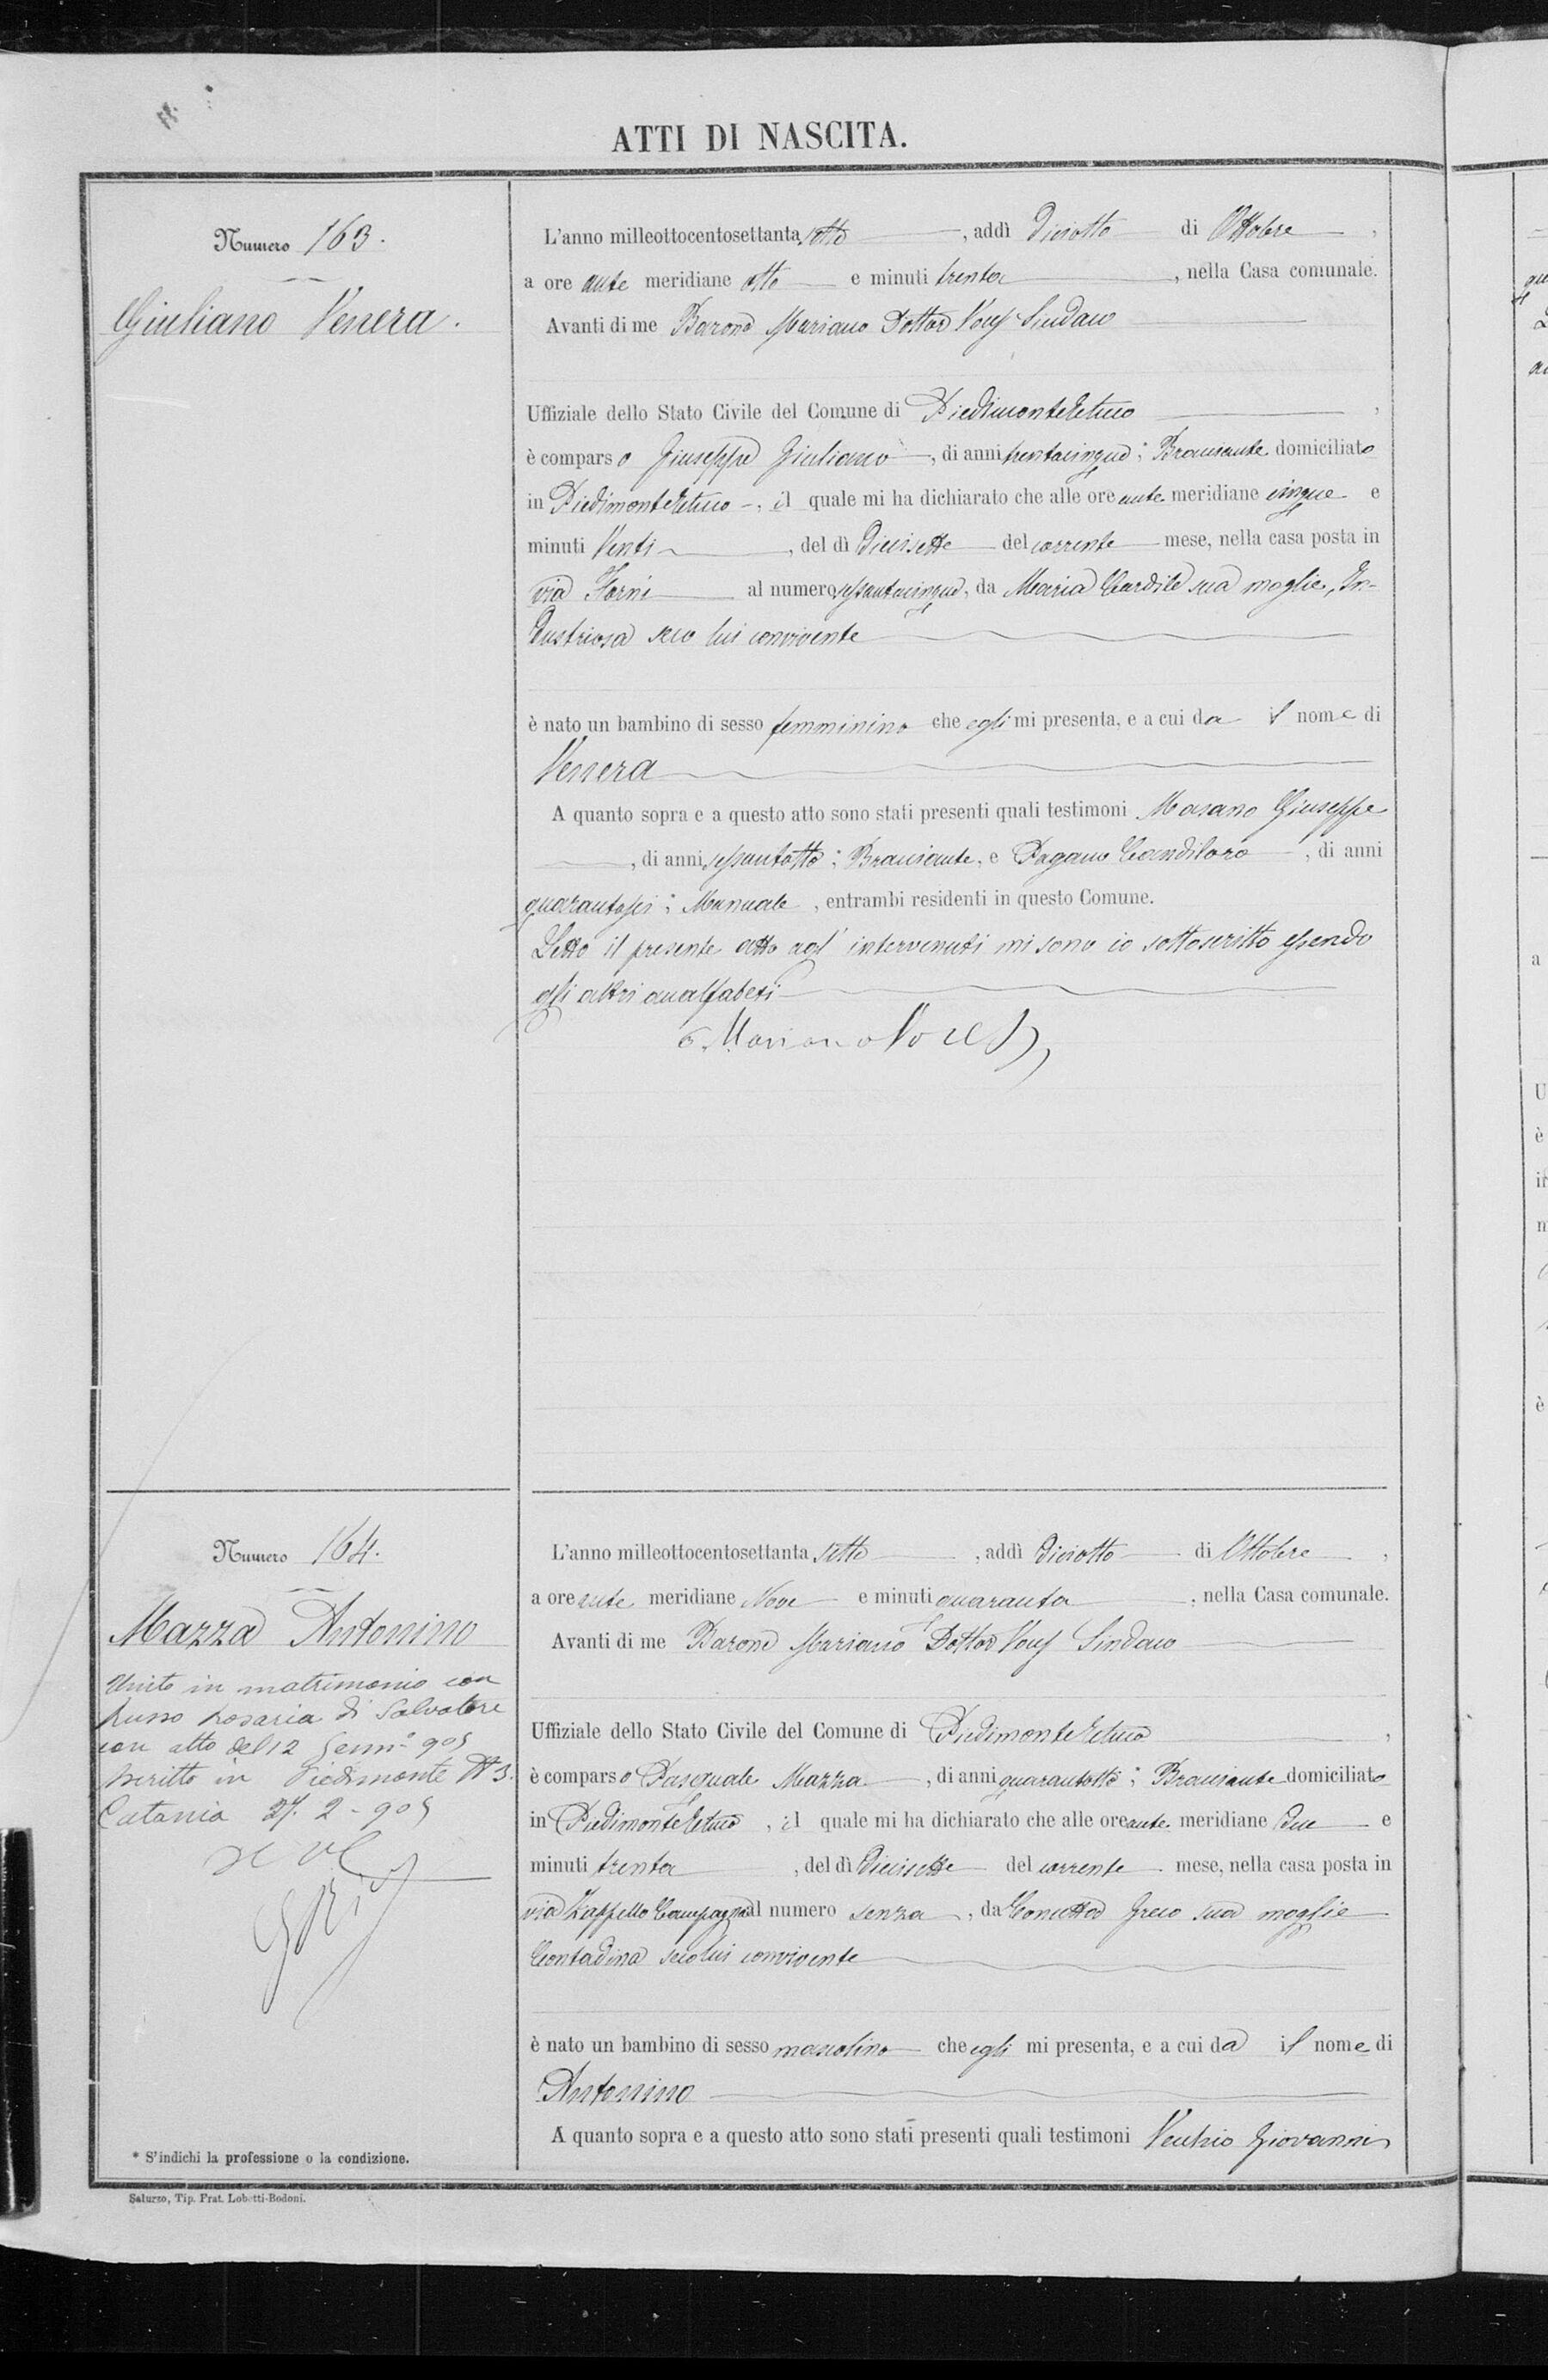 ATTI DI NASCITA.
Numero 163.
Giuliano Venera.
L'anno milleottocentosettantasette, addì Diciotto di Ottobre,
a ore ante meridiane otto e minuti trenta, nella Casa comunale.
Avanti di me Barone Mariano Dottor Voces Sindaco
Uffiziale dello Stato Civile del Comune di Piedimonte Etneo,
è comparso Giuseppe Giuliano, di anni trentacinque; Bracciante domiciliato
in Piedimonte Etneo, il quale mi ha dichiarato che alle ore ante meridiane cinque e
minuti Venti, del dì Diciisette del corrente mese, nella casa posta in
via Forni al numero sessantacinque, da Maria Cardile sua moglie, In-
dustriosa seco lui convivente
è nato un bambino di sesso femminino che egli mi presenta, e a cui da il nome di
Venera
A quanto sopra e a questo atto sono stati presenti quali testimoni Masano Giuseppe
, di anni sessantotto; Bracciante, e Pagano Candiloro, di anni
quarantasei; Manuale, entrambi residenti in questo Comune.
Letto il presente atto agl' intervenuti mi sono io sottoscritto essendo
gli altri analfabeti
Mariano Voces
Numero 164.
Mazza Antonino
Unito in matrimonio con
Russo Rosaria di Salvatore
con atto del 12 Genn° 905
Iscritto in Piedimonte N° 3.
Catania 27. 2 - 905
L'anno milleottocentosettantasette, addì Diciotto di Ottobre,
a ore ante meridiane Nove e minuti quaranta, nella Casa comunale.
Avanti di me Barone Mariano Dottor Voces Sindaco
Uffiziale dello Stato Civile del Comune di Piedimonte Etneo,
è comparso Pasquale Mazza, di anni quarantotto; Bracciante domiciliato
in Piedimonte Etneo, il quale mi ha dichiarato che alle ore ante meridiane Due e
minuti trenta, del dì Diciisette del corrente mese, nella casa posta in
via Zappello Campagna al numero senza, da Concetta Greco sua moglie
Contadina seco lui convivente
è nato un bambino di sesso mascolino che egli mi presenta, e a cui da il nome di
Antonino
A quanto sopra e a questo atto sono stati presenti quali testimoni Vecchio Giovanni
* S'indichi la professione o la condizione.
Saluzzo, Tip. Frat. Lobetti-Bodoni.